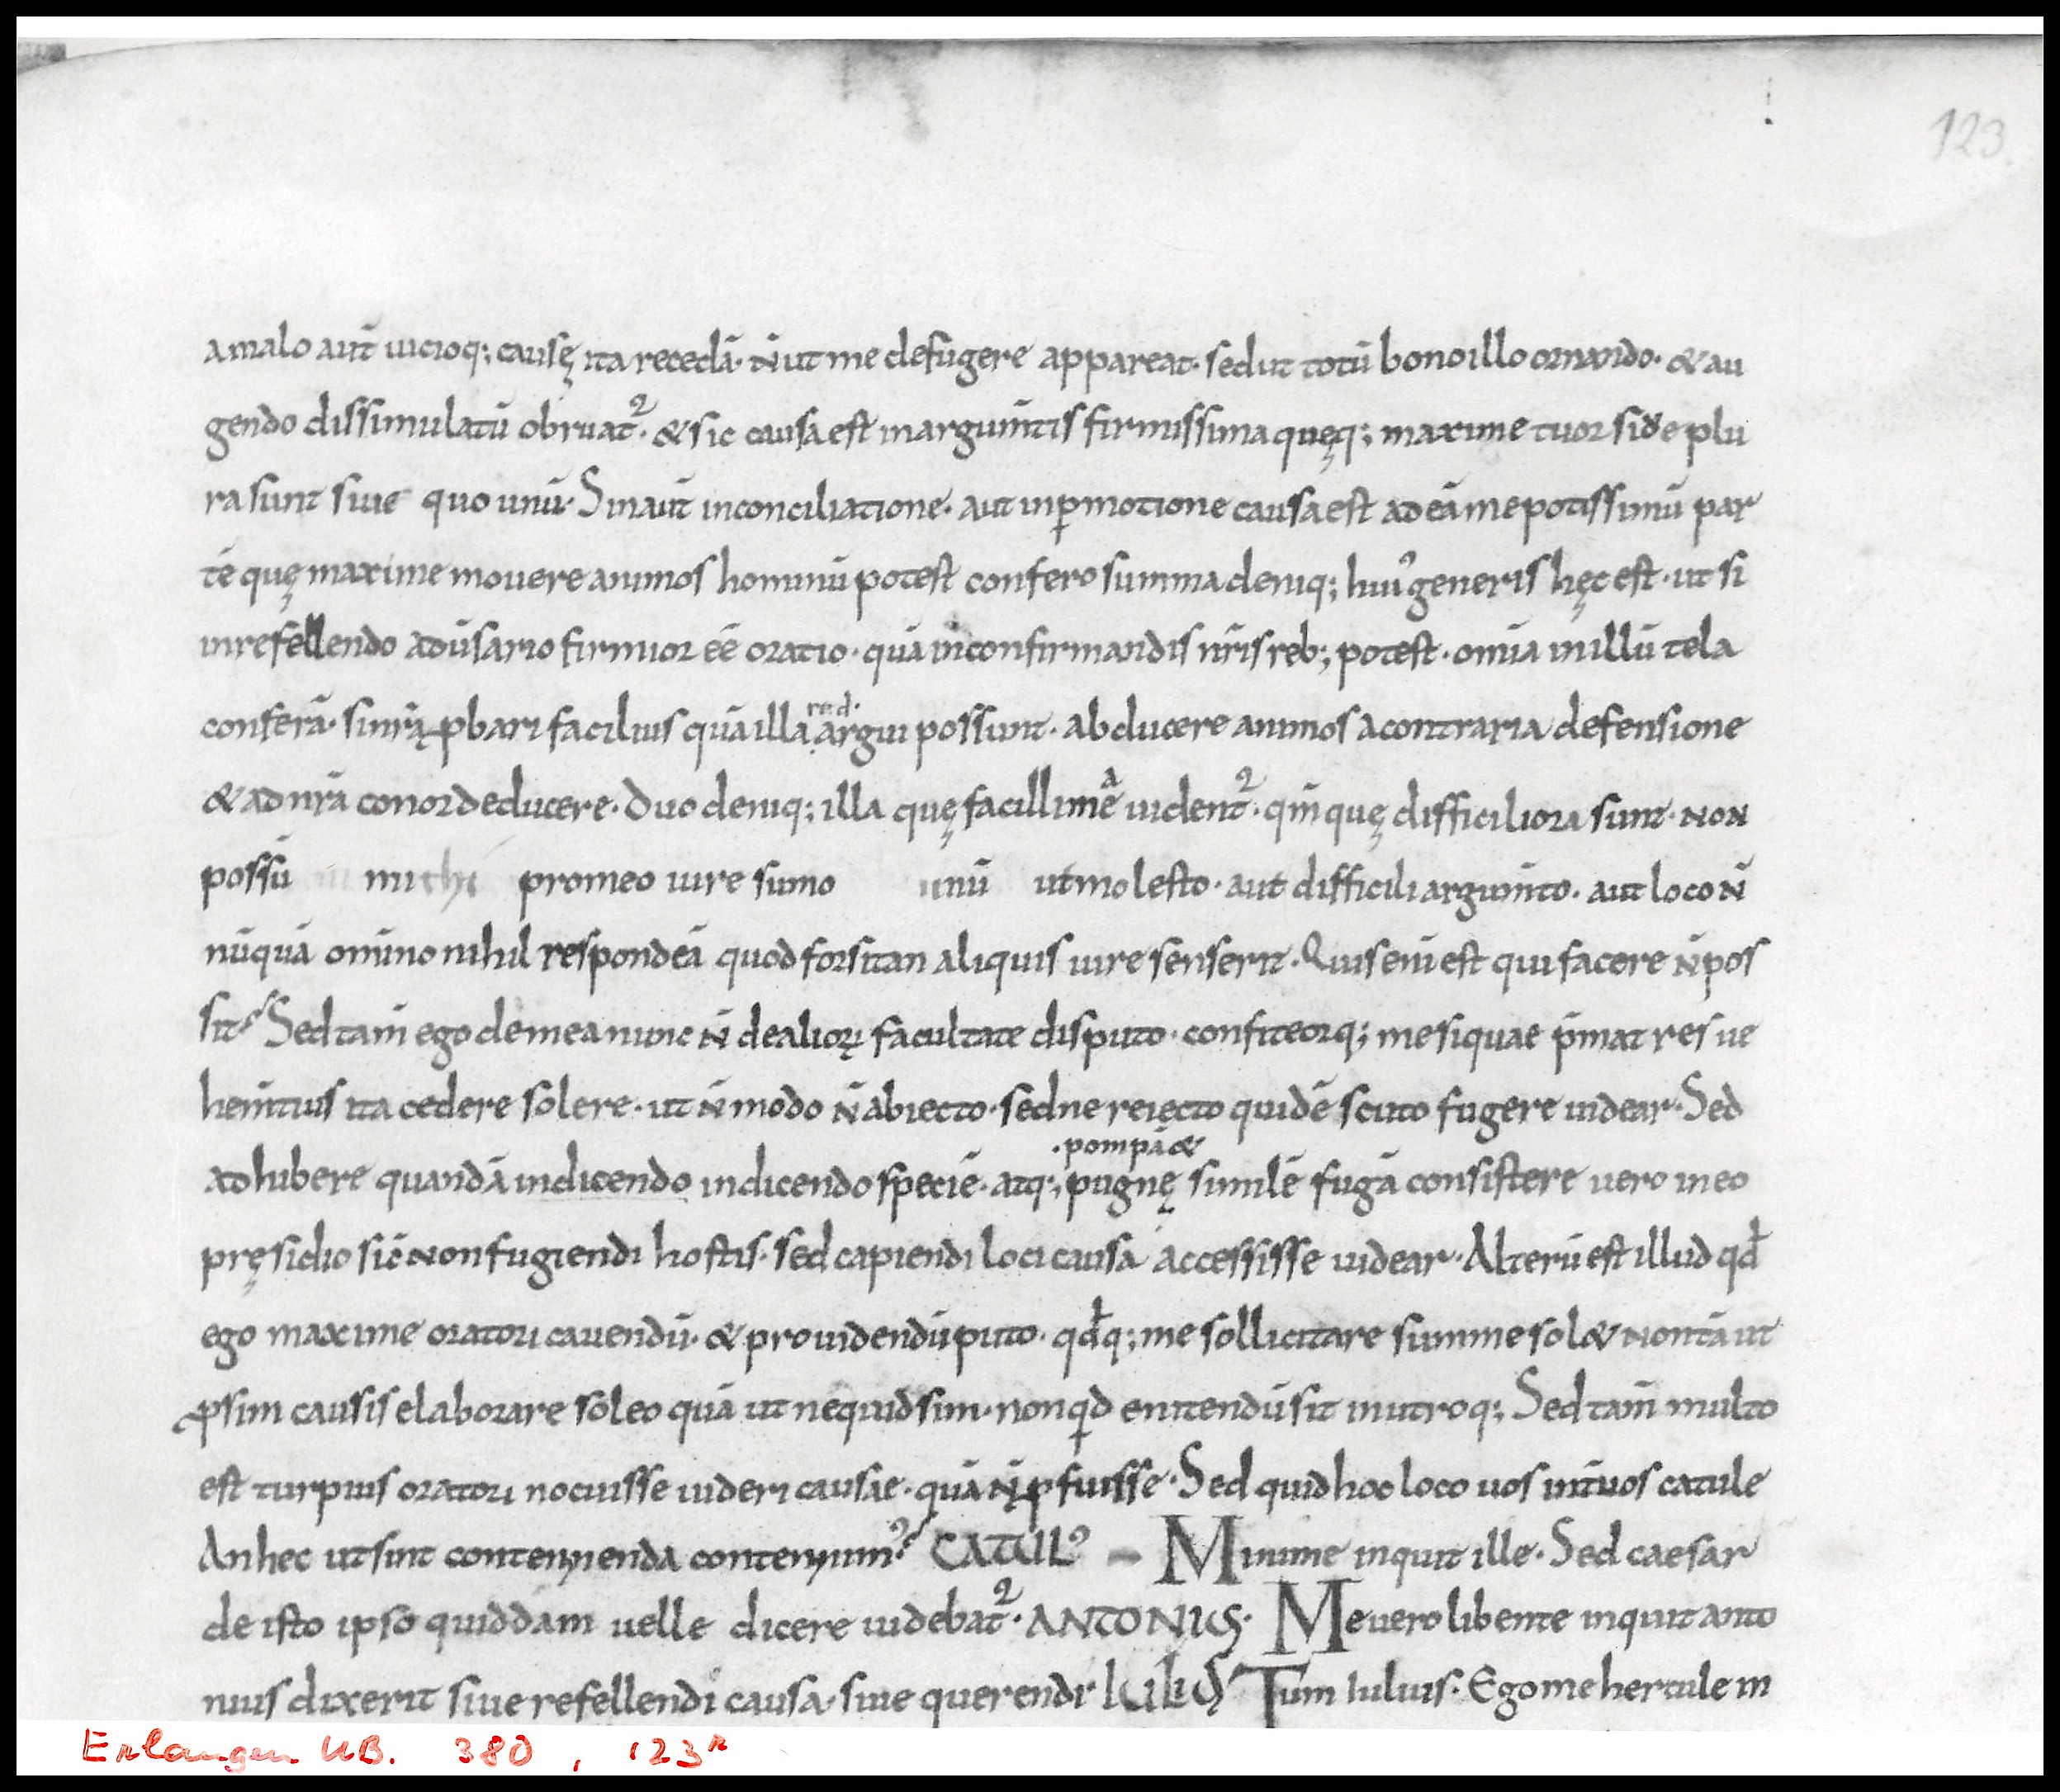 123.
a malo aut̄ uicioq; causę ita recedā· n̄ ut me defugere appareat· sed ut totū bono illo ornando· & au
gendo dissimulatū obruat᷑· & sic causa est in argum̄tis firmissima quęq; maxime tuor siue plu
ra sunt siue quo unū· Sin aut̄ in conciliatione· aut in ꝑmotione causa est ad eā me potissimū par
tē quę maxime mouere animos hominū potest confero summa deniq; huiꝰ generis hęc est· ut si
in refellendo aduāsario firmior ēē oratio· quā in confirmandis nr̄is reb; potest· om̄ia in illū tela
conferā· si nr̄ą ꝓbari facilius quā illa argui possunt· abducere animos a contraria defensione
red·
& ad nr̄ā conor deducere· Duo deniq; illa quę facillimea uident᷑· qm̄ quę difficiliora sunt· non
possū michi pro meo iure sumo unū ut molesto· aut difficili argum̄to· aut loco n̄
nūquā om̄ino nihil respondeā quod forsitan aliquis iure senserit· Quis eni est qui facere n̄ pos
sit? Sed tam̄ ego de mea nunc n̄ de alioꝝ facultate disputo· confiteorq; me siquae p̄mat res ue
hem̄tius ita cedere solere· ut n̄ modo n̄ abiecto· sed ne reiecto quidē scuto fugere uidear· Sed
adhibere quandā in dicendo in dicendo speciē· atq; pugnę similē fugā consistere uero meo
·pompā &
pręsidio sic non fugiendi hostis· sed capiendi loci causa accessisse uidear· Alterū est illud qd̄
ego maxime oratori cauendū· & prouidendū puto· qd̄q; me sollicitare summe sol& non tā ut
ꝓsim causis elaborare soleo quā ut nequid sim· non qd enitendū sit in utroq; Sed tam̄ multo
est turpius oratori nocuisse uideri causae· quā n̄ ꝓfuisse· Sed quid hoc loco uos int̄ uos catule
An hec ut sint contemnenda contemnimꝰ? CATULꝰ – Minime inquit ille· Sed caesar
de isto ipso quiddam uelle dicere uidebat᷑· ANTONIUS· Me uero libente inquit anto
nius dixerit siue refellendi causa· siue querendi· IULIUS Tum Iulius· Ego me hercule in
Erlangen UB. 380, 123r